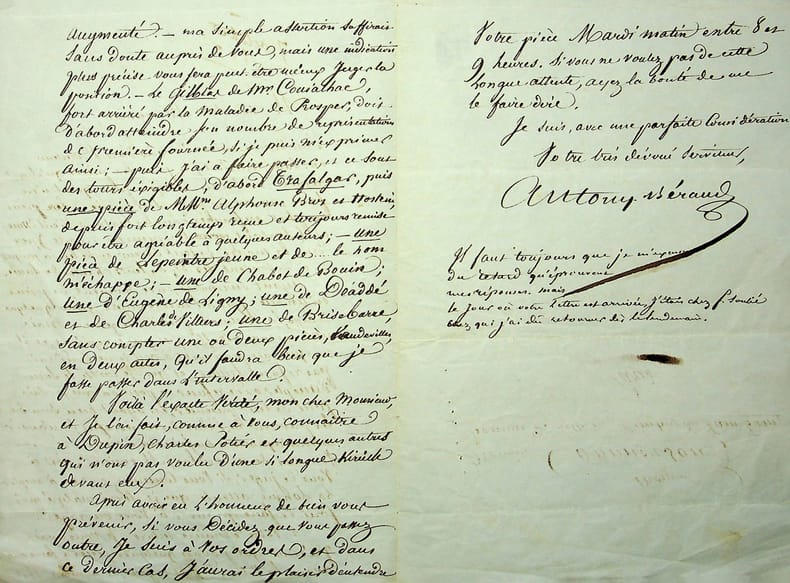 augmenté. — ma simple assertion suffirait
sans doute auprès de vous, mais une indication
plus précise vous fera peut-être mieux juger la
position. — Le Gilblas de Mr. Couailhac,
fort arriéré par la maladie de Prosper, doit
d'abord attendre son nombre de représentations
de première fournée, si je puis m'exprimer
ainsi; — puis j'ai à faire passer, et ce sont
des tours exigibles, d'abord Trafalgar, puis
une pièce de MM. Alphonse Bros et
depuis fort longtemps reçue et toujours remise
pour être agréable à quelques auteurs; — une
pièce de Lepeintre jeune et de... le nom
m'échappe; — une de Chabot de Bouin;
une d'Eugène de Ligny; une de Doaddé
et de Charles de Villiers; une de Brisebarre,
sans compter une ou deux pièces, Vaudevilles
en deux actes, qu'il faudra bien que je
fasse passer dans l'intervalle.
Voilà l'exacte vérité, mon cher Monsieur,
et je l'ai fait, comme à vous, connaître
à Dupin, Charles Potier et quelques autres
qui n'ont pas voulu d'une si longue Kirielle
devant eux.
Après avoir eu l'honneur de bien vous
prévenir, si vous décidez que vous passez
outre, je suis à vos ordres, et dans
ce dernier cas, j'aurai le plaisir d'entendre
Votre pièce Mardi matin entre 8 et
9 heures. Si vous ne voulez pas de cette
longue attente, ayez la bonté de me
le faire dire.
Je suis, avec une parfaite Considération
Votre très dévoué serviteur,
Antony Béraud
Il faut toujours que je m'excuse
du retard qu'éprouvent
mes réponses. mais
le jour où votre lettre est arrivée, j'étais chez f. Soulié
chez qui j'ai dû retourner dès le lendemain.